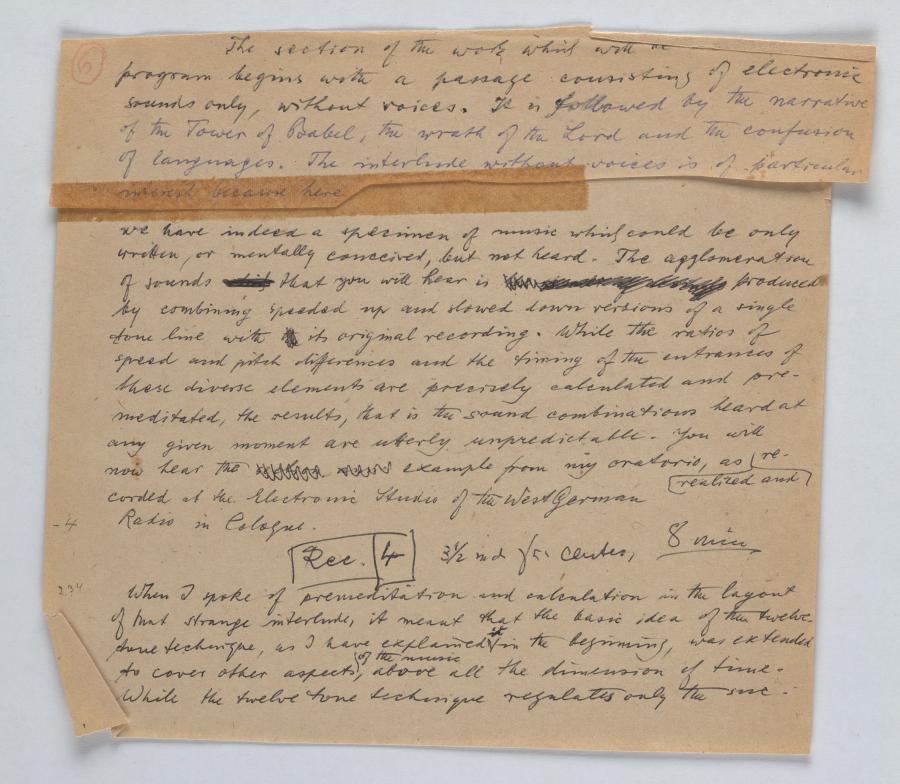 5
The section of the work which will be
program begins with a passage consisting of electronic
sounds only, without voices. It is followed by the narrative
of the Tower of Babel, the wrath of the Lord and the confusion
of languages. The interlude without voices is of particular
interest because here
we have indeed a specimen of music which could be only
written, or mentally conceived, but not heard. The agglomeration
of sounds that you will hear is produced
by combining speeded up and slowed down versions of a single
tone line with its original recording. While the ratios of
speed and pitch differences and the timing of the entrances of
these diverse elements are precisely calculated and pre-
meditated, the results, that is the sound combinations heard at
any given moment are utterly unpredictable. You will
now hear the example from my oratorio, as re-
realized and
corded at the Electronic Studio of the West German
-4 Radio in Cologne.
Rec. 4 3 1/2 center, 8 min
234 When I spoke of premeditation and calculation in the layout
of that strange interlude, it meant that the basic idea of the twelve-
tone technique, as I have explained it in the beginning, was extended
of the music
to cover other aspects, above all the dimension of time.
While the twelve tone technique regulates only the suc-